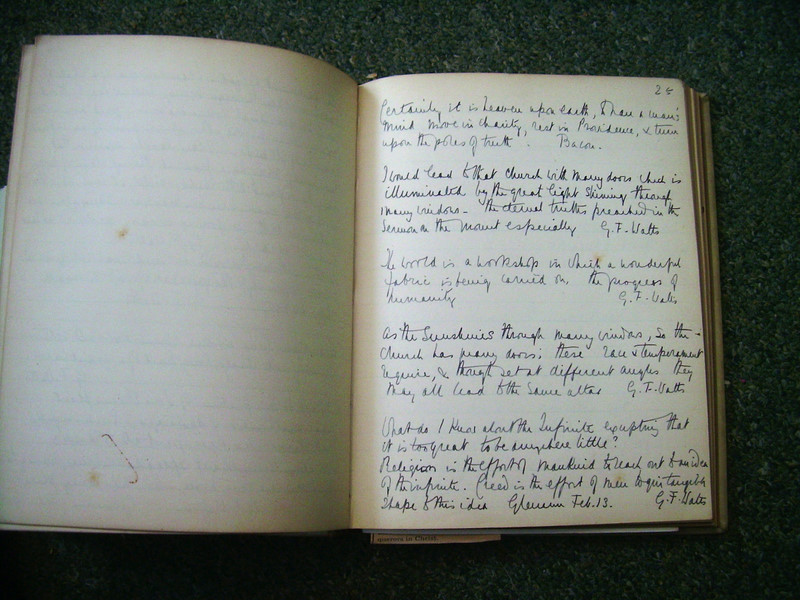 25
Certainly it is heaven upon earth, to have a man's
mind move in charity, rest in Providence, & turn
upon the poles of truth. Bacon.
I would lead to that church with many doors which is
illuminated by the great light shining through
many windows - the eternal truths preached in the
Sermon on the mount especially G. F. Watts
The world is a workshop in which a wonderful
fabric is being carried on, the progress of
humanity G. F. Watts
As the Sun shines through many windows, so the
church has many doors; these race & temperament
require, & though set at different angles they
may all lead to the same altar G. F. Watts
What do I know about the Infinite excepting that
it is too great to be anywhere little?
Religion is the effort of mankind to reach out to an idea
of the infinite. Creed is the effort of men to give tangible
shape to this idea Feb. 13. G. F. Watts
in Christ.